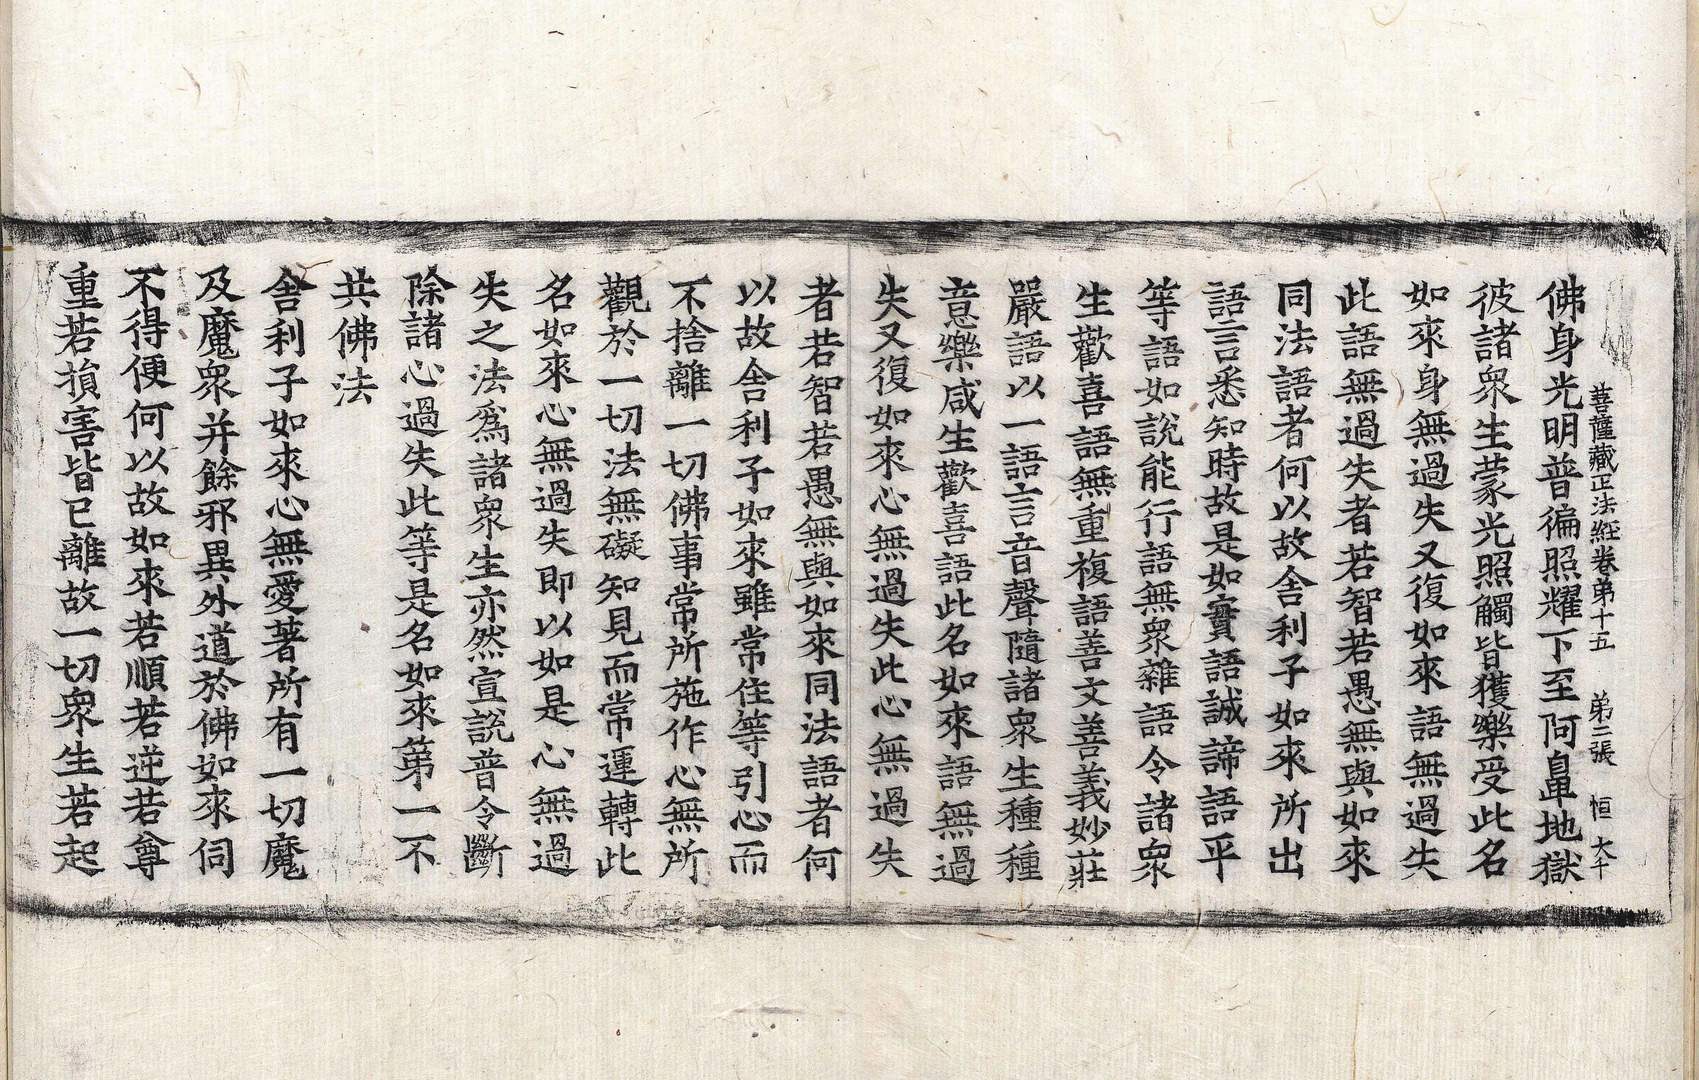 菩薩藏正法經卷第十五　第二張　恒　大千
佛身光明普徧照耀下至阿鼻地獄
彼諸衆生蒙光照觸皆獲樂受此名
如來身無過失又復如來語無過失
此語無過失者若智若愚無與如來
同法語者何以故舍利子如來所出
語言悉知時故是如實語誠諦語平
等語如說能行語無衆雜語令諸衆
生歡喜語無重複語善文善義妙莊
嚴語以一語言音聲隨諸衆生種種
意樂咸生歡喜語此名如來語無過
失又復如來心無過失此心無過失
者若智若愚無與如來同法語者何
以故舍利子如來雖常住等引心而
不捨離一切佛事常所施作心無所
觀於一切法無礙知見而常運轉此
名如來心無過失即以如是心無過
失之法爲諸衆生亦然宣說普令斷
除諸心過失此等是名如來第一不
共佛法
舍利子如來心無愛著所有一切魔
及魔衆并餘邪異外道於佛如來伺
不得便何以故如來若順若逆若尊
重若損害皆已離故一切衆生若起